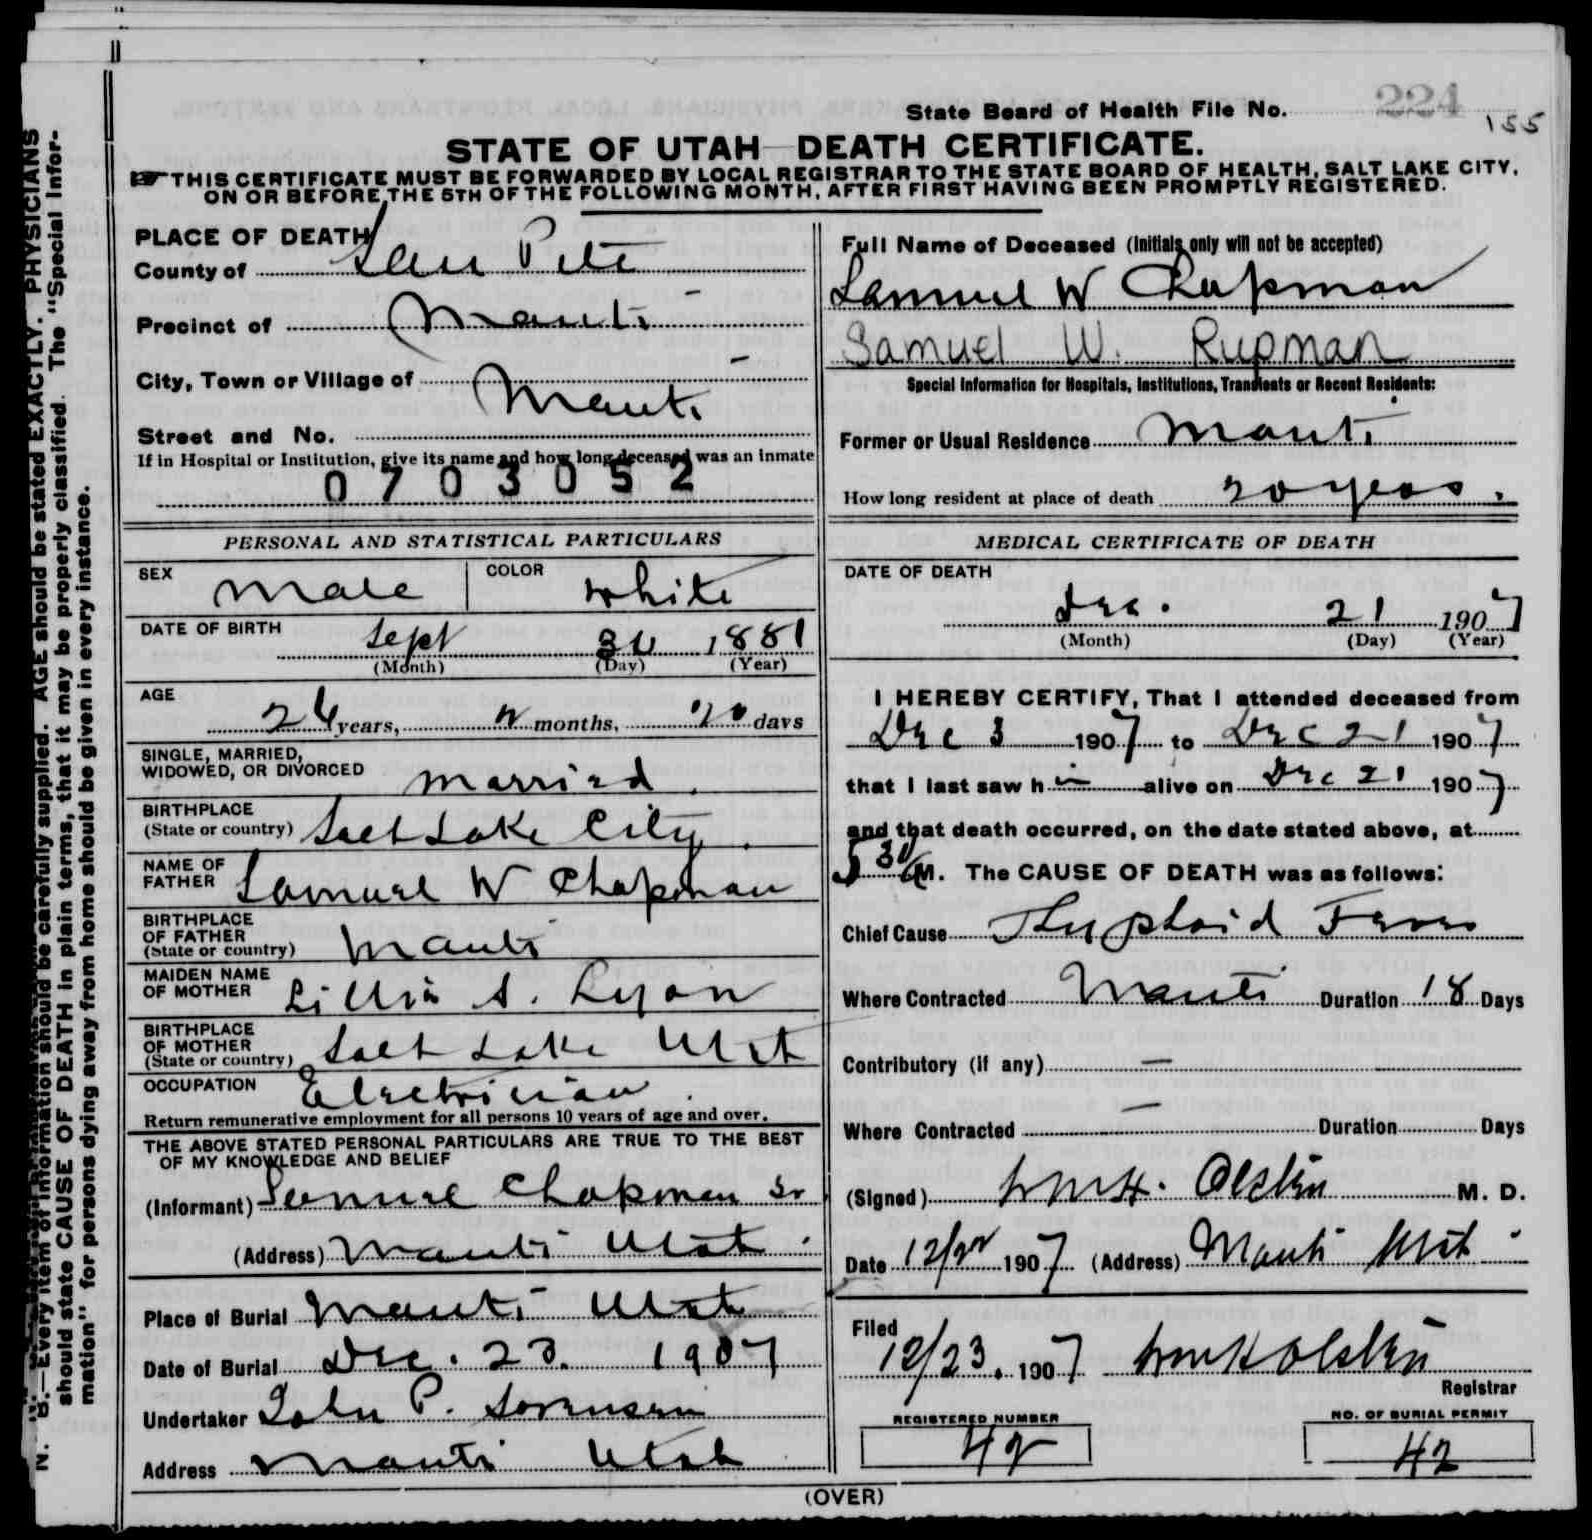 State Board of Health File No. 224
155
STATE OF UTAH DEATH CERTIFICATE.
THIS CERTIFICATE MUST BE FORWARDED BY LOCAL REGISTRAR TO THE STATE BOARD OF HEALTH, SALT LAKE CITY,
ON OR BEFORE THE 5TH OF THE FOLLOWING MONTH, AFTER FIRST HAVING BEEN PROMPTLY REGISTERED.
PLACE OF DEATH
County of San Pete
Precinct of Manti
City, Town or Village of Manti
Street and No.
If in Hospital or Institution, give its name and how long deceased was an inmate
0703052
PERSONAL AND STATISTICAL PARTICULARS
SEX Male COLOR White
DATE OF BIRTH Sept 1881
(Month) (Day) (Year)
AGE 26 years, 2 months, 20 days
SINGLE, MARRIED,
WIDOWED, OR DIVORCED Married.
BIRTHPLACE
(State or country) Salt Lake City.
NAME OF
FATHER Samuel W Chapman
BIRTHPLACE
OF FATHER
(State or country) Manti
MAIDEN NAME
OF MOTHER Lillis S. Lyon
BIRTHPLACE
OF MOTHER
(State or country) Salt Lake Utah
OCCUPATION Electrician.
Return remunerative employment for all persons 10 years of age and over.
THE ABOVE STATED PERSONAL PARTICULARS ARE TRUE TO THE BEST
OF MY KNOWLEDGE AND BELIEF
(Informant) Samuel Chapman Sr
(Address) Manti Utah.
Place of Burial Manti Utah
Date of Burial Dec. 23. 1907
Undertaker John P. Sorensen
Address Manti Utah
Full Name of Deceased (Initials only will not be accepted)
Samuel W Chapman
Samuel W. Rupman
Special Information for Hospitals, Institutions, Transients or Recent Residents:
Former or Usual Residence Manti
How long resident at place of death 20 years.
MEDICAL CERTIFICATE OF DEATH
DATE OF DEATH
Dec. 21 1907
(Month) (Day) (Year)
I HEREBY CERTIFY, That I attended deceased from
Dec 3 1907 to Dec 21 1907
that I last saw h im alive on Dec 21 1907
and that death occurred, on the date stated above, at
5 30 A M. The CAUSE OF DEATH was as follows:
Chief Cause Thyphoid Fever
Where Contracted Manti Duration 18 Days
Contributory (if any) —
Where Contracted — Duration Days
(Signed) Wm H. Olsten M. D.
Date 12/22 1907 (Address) Manti Utah
Filed
12/23. 1907 Wm H Olsten
Registrar
REGISTERED NUMBER
42
NO. OF BURIAL PERMIT
42
(OVER)
N. B.—Every item of information should be carefully supplied. AGE should be stated EXACTLY. PHYSICIANS
should state CAUSE OF DEATH in plain terms, that it may be properly classified. The "Special Infor-
mation" for persons dying away from home should be given in every instance.